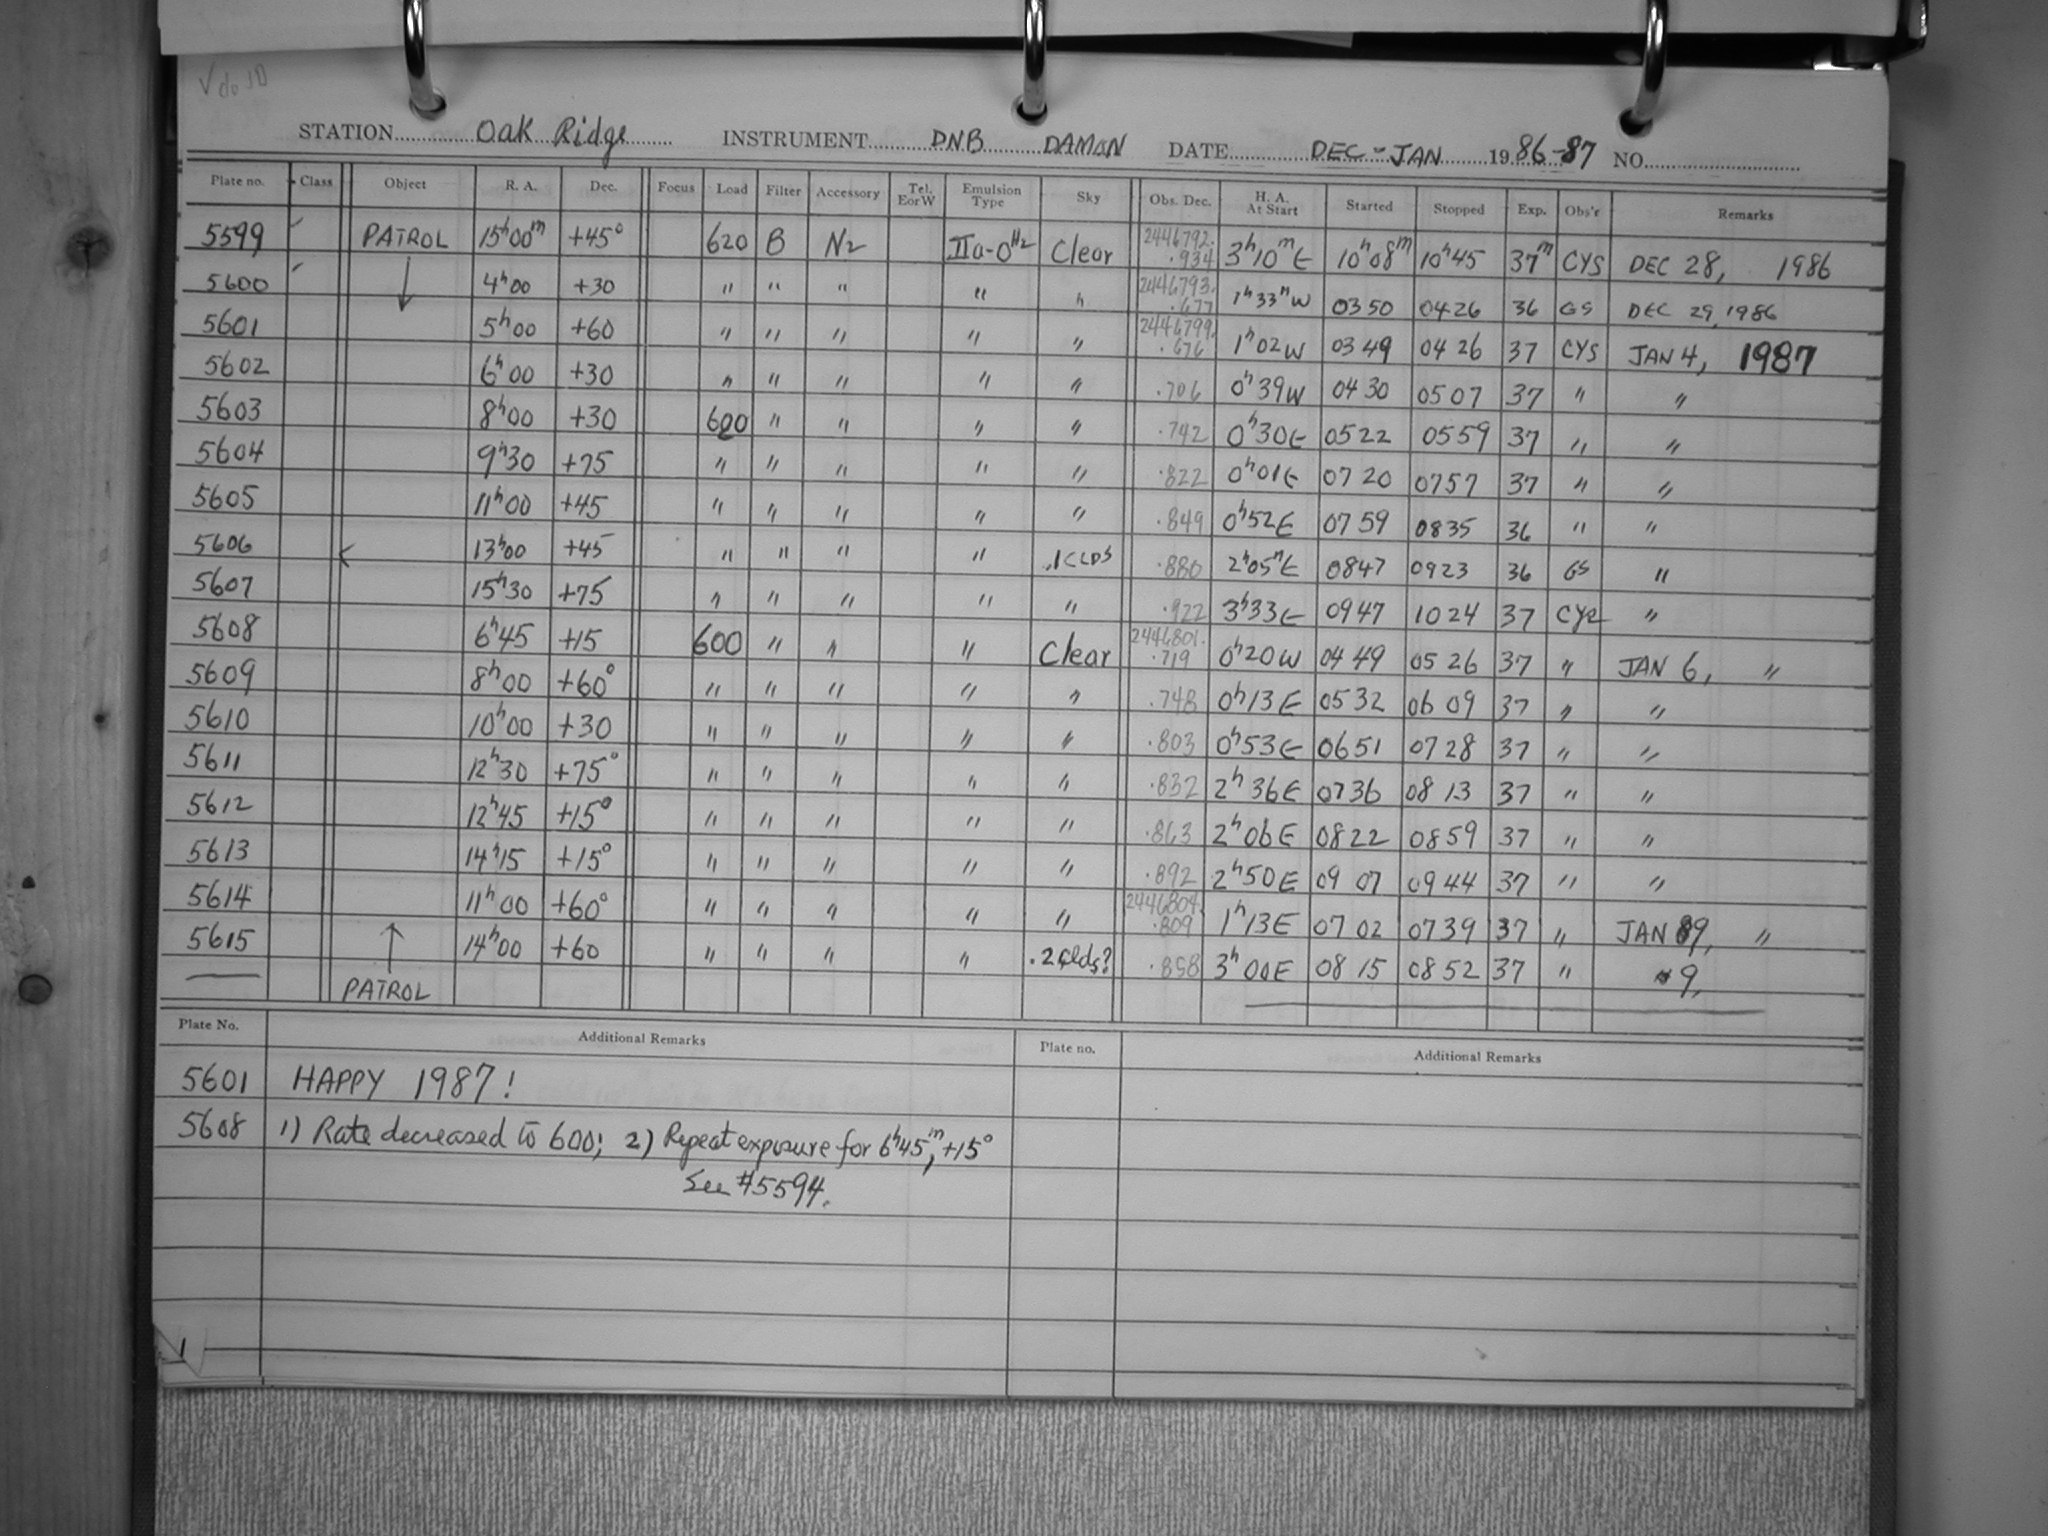 √ do JD
STATION Oak Ridge INSTRUMENT DNB DAMON DATE DEC-JAN 1986-87 NO.
Plate no. Class Object R. A. Dec. Focus Load Filter Accessory Tel. E or W Emulsion Type Sky Obs. Dec. H. A. At Start Started Stopped Exp. Obs'r Remarks
5599 PATROL 15h00m +45° 620 B N2 IIa-OH2 Clear 2446792. .934 3h10mE 10h08m 10h45 37m CYS DEC 28, 1986
5600 4h00 +30 " " " " " 2446793. .677 1h33mW 0350 0426 36 GS DEC 29, 1986
5601 5h00 +60 " " " " " 2446799. .676 1h02W 0349 0426 37 CYS JAN 4, 1987
5602 6h00 +30 " " " " " .706 0h39W 0430 0507 37 " "
5603 8h00 +30 620 " " " " .742 0h30E 0522 0559 37 " "
5604 9h30 +75 " " " " " .822 0h01E 0720 0757 37 " "
5605 11h00 +45 " " " " " .849 0h52E 0759 0835 36 " "
5606 13h00 +45 " " " " .1CLDS .880 2h05mE 0847 0923 36 GS "
5607 15h30 +75 " " " " " .922 3h33E 0947 1024 37 CYS "
5608 6h45 +15 600 " " " Clear 2446801. .719 0h20W 0449 0526 37 " JAN 6, "
5609 8h00 +60° " " " " " .748 0h13E 0532 0609 37 " "
5610 10h00 +30 " " " " " .803 0h53E 0651 0728 37 " "
5611 12h30 +75° " " " " " .832 2h36E 0736 0813 37 " "
5612 12h45 +15° " " " " " .863 2h06E 0822 0859 37 " "
5613 14h15 +15° " " " " " .892 2h50E 0907 0944 37 " "
5614 11h00 +60° " " " " " 2446804. .809 1h13E 0702 0739 37 " JAN 9, "
5615 14h00 +60 " " " " .2 Clds? .858 3h00E 0815 0852 37 " 9,
PATROL
Plate No. Additional Remarks Plate no. Additional Remarks
5601 HAPPY 1987!
5608 1) Rate decreased to 600; 2) Repeat exposure for 6h45m, +15°
See #5594.
1